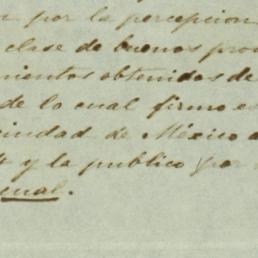 por la percepcion
clase de buenos pro
mientos obtenidos de
de lo cual firmo es
ciudad de México a
y la publico por
cual.